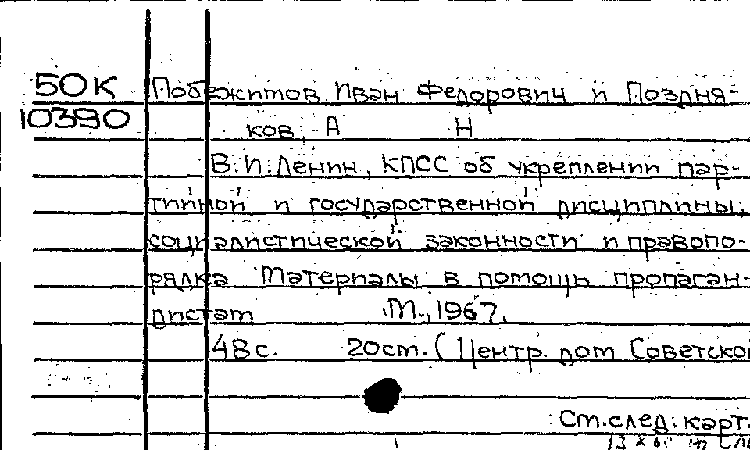 50К Побежимов, Иван Федорович и Поздня-
10390 ков, А Н
В.И.Ленин, КПСС об укреплении пар-
тийной и государственной дисциплины,
социалистической законности и правопо-
рядка Материалы в помощь пропаган-
дистат М., 1967.
48с. 20см. (Центр. дом Советской
См.след.карт.